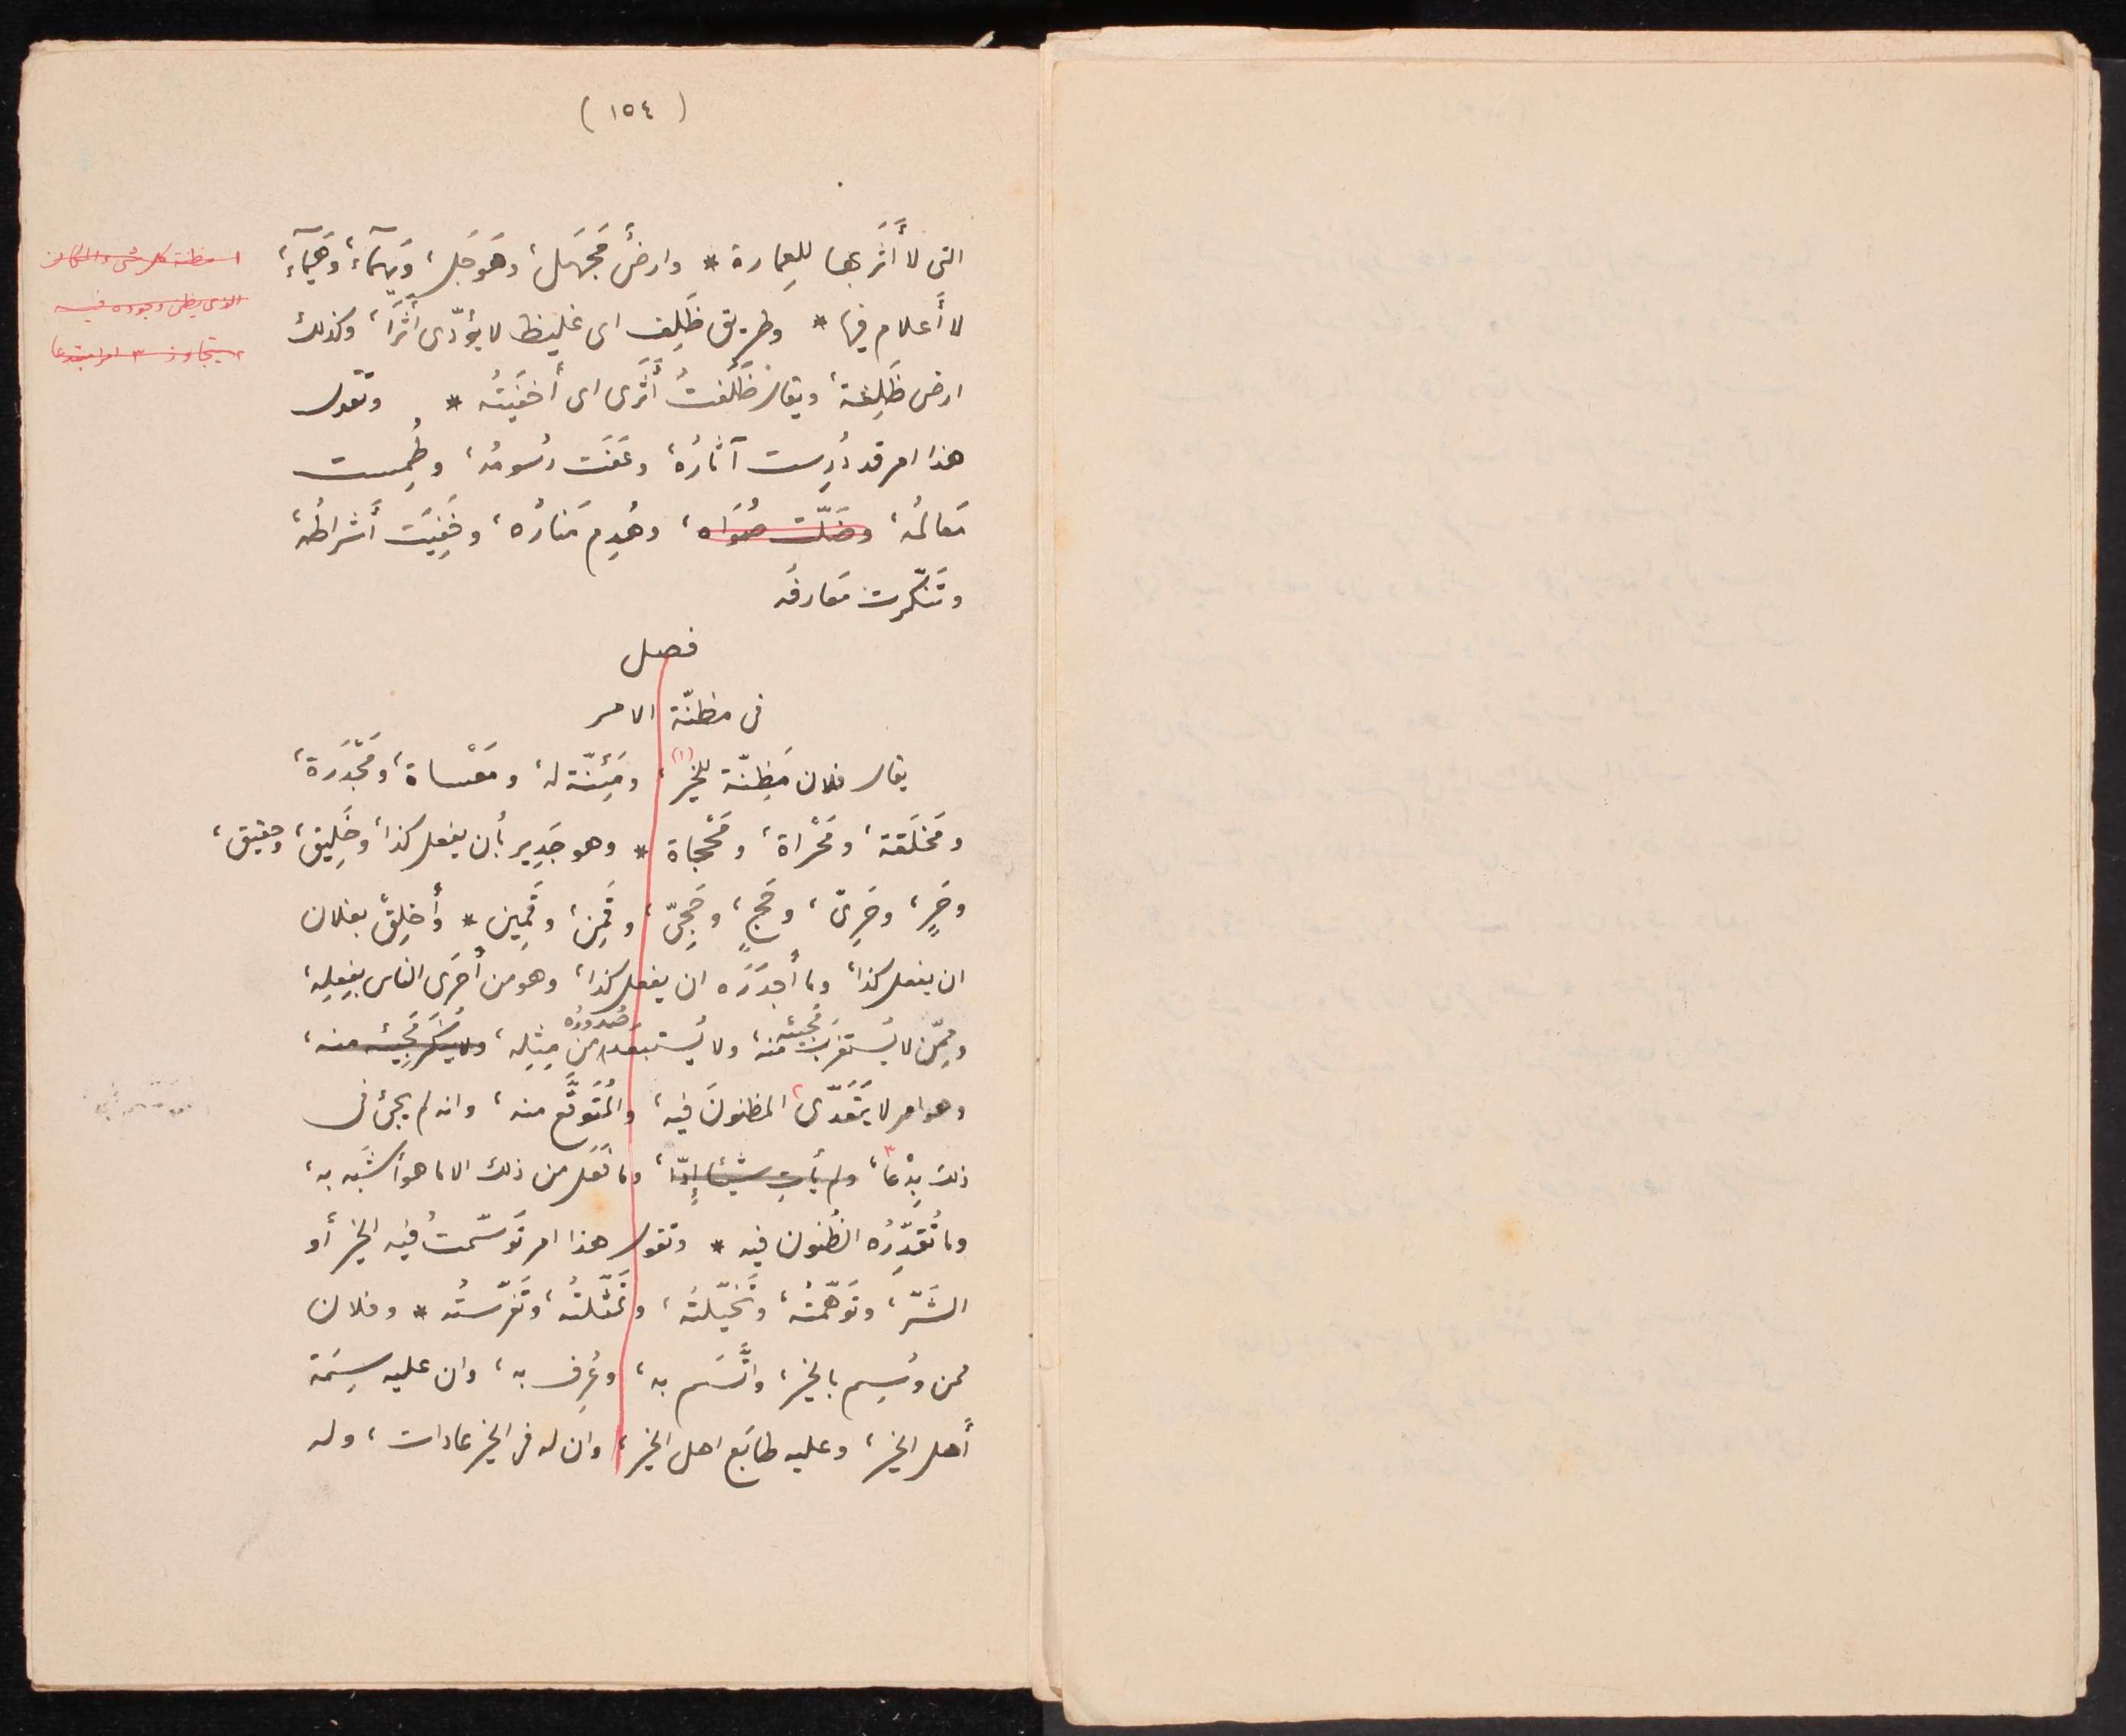 (١٥٤)
التى لا أَثَر بها للعِمارة * وارضٌ مَجْهَل، وهَوجَل، ويَهمآء، وهَيمآء،
لا أَعلام فيها * وطريق ظَلِف اى غليظ لا يؤدّى أثَرًا، وكذلك
ارض ظَلِفة، ويقال ظَلَفتُ أَثَرى اى أخفَيتُه * وتقول
هذا امر قد دُرِست آثارُهُ، وعَفَت رُسومُه، وطُمِست
مَعالمُه، وضَلّت صُوَاه، وهُدِم مَنارُه، وخَفِيَت أَشراطُه،
وتَنَكّرت مَعارفُه
فصل
فى مظنّة الامر
يقال فلان مَظِنّة للخير (١)، ومَئِنّة له، ومَعْساة، ومَجْدَرَة،
ومَخلَقة، ومَحْراة، ومَحْجاة * وهو جَدِير بأن يفعل كذا، وخَلِيق، وحقيق،
وحَرٍ، وحَرِىّ، وحَجٍ، وحَجِىّ، وقَمِن، وقَمِين * وأَخلِقْ بفلان
ان يفعل كذا، وما أَجدَرَه ان يفعل كذا، وهو من أَحرَى الناس بفِعلِه،
وممّن لا يُستَغرَب مَجيئه منه، ولا يُستبعَد صُدورُه من مِثلِه، ولا يُنكَر مَجِيئه منه،
وهو امر لا يَتَعَدّى ٢ المظنونَ فيه، والمُتَوقَّع منه، وانه لم يجئ فى
ذلك بِدْعًا ٣، ولم يأتِ شيئا إدًّا، وما فَعَل من ذلك الا ما هو أشبَه به،
وما تُقدِّرُه الظُنون فيه * وتقول هذا امر تَوسّمتُ فيه الخير أو
الشَرّ، وتَوهّمتُه، وتَخَيّلتُه، وتَمَثّلتُه، وتَفَرّستُه * وفلان
ممن وُسِم بالخير، واتَّسَم به، وعُرِف به، وان عليه سِمَة
أَهل الخير، وعليه طابَع اهل الخير، وان له فى الخير عادات، وله
١ مظنة كل شىء المكان
الذى يظن وجوده فيه
٢ يتجاوز ٣ امرا مبتدعا